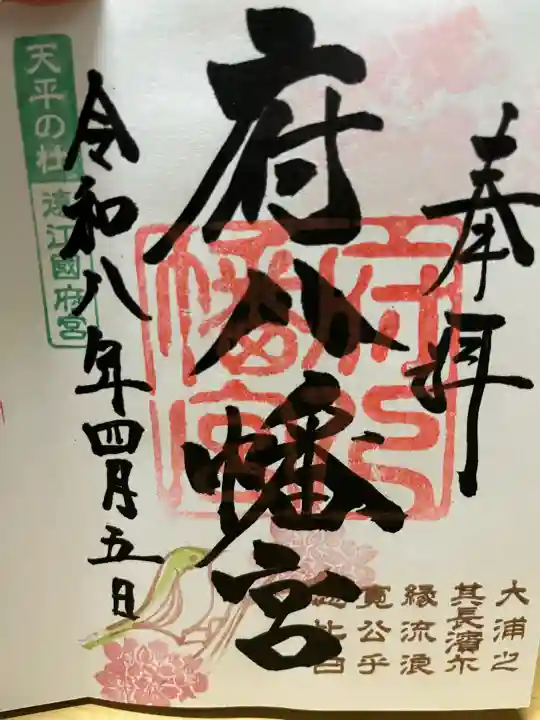 奉拝
府八幡宮
府八幡宮
令和八年四月五日
天平の杜
遠江國府宮
大浦之
其長濱尓
縁流浪
寛公乎